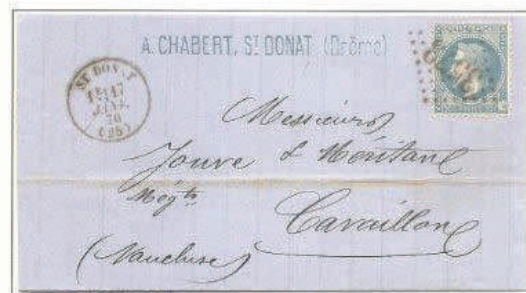 A. CHABERT, St DONAT (Drôme)
ST DONAT
JANV.
70
(25)
Messieurs
Jouve & Méritan
Négts
Cavaillon
(Vaucluse)